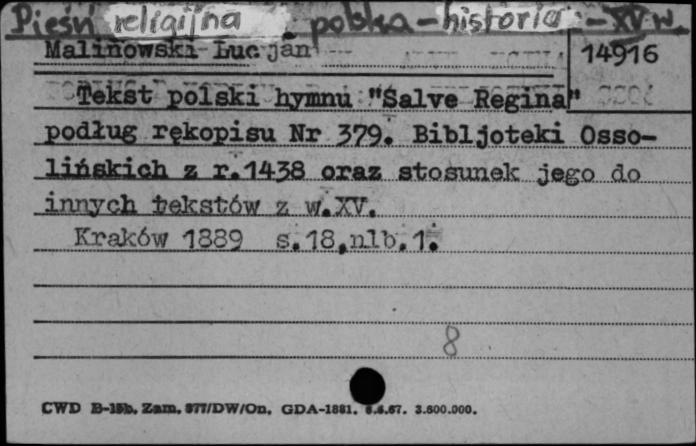 Pieśń religijna - polska - historia - XV w.
Malinowski Lucjan
14916
Tekst polski hymnu "Salve Regina"
podług rękopisu Nr 379. Bibljoteki Osso-
lińskich z r.1438 oraz stosunek jego do
innych tekstów z w.XV.
Kraków 1889 s.18,nlb.1.
8
CWD B-15b. Zam. 977/DW/On. GDA-1881. 6.6.67. 3.600.000.